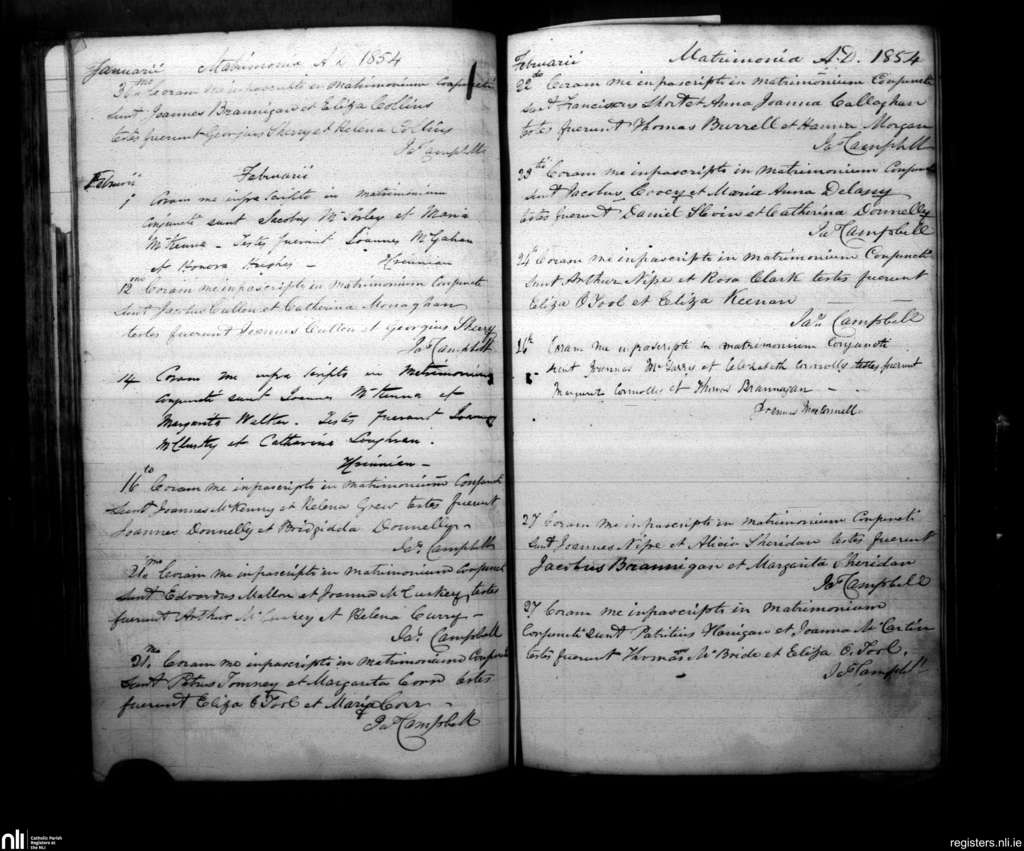 Januarii Matrimonia A D 1854
31mo Coram me infrascripto in matrimonium Conjuncti
sunt Joannes Brannigan et Eliza Collins
testes fuerunt Georgius Sherry et Helena Collins
Jas Campbell
Februarii
1 Coram me infra scripto in matrimonium
conjuncti sunt Jacobus McSorley et Maria
McKenna - Testes fuerunt Joannes McGahan
et Honora Hughes -
12 Coram me infrascripto in matrimonium Conjuncti
sunt Jacobus Cullen et Catherina Monaghan
testes fuerunt Joannes Cullen et Georgius Sherry
Jas Campbell
14 Coram me infra scripto in matrimonium
conjuncti sunt Joannes McKenna et
Margarita Welter. Testes fuerunt
McClusky et Catharina Loughran.
16to Coram me infrascripto in matrimonium Conjuncti
sunt Joannes McKenny et Helena Grew testes fuerunt
Joannes Donnelly et Bridgidda Donnelly
Jas Campbell
21mo Coram me infrascripto in matrimonium Conjuncti
sunt Edvardus Mallon et Joanna McCurkey testes
fuerunt Arthur et Helena Curry -
Jas Campbell
21mo Coram me infrascripto in matrimonium Conjuncti
sunt Petrus Tomney et Margarita Corr testes
fuerunt Eliza O Tool et Maria Corr -
Jas Campbell
Februarii Matrimonia A.D. 1854
22do Coram me infrascripto in matrimonium Conjuncti
sunt Franciscus Short et Anna Joanna Callaghan
testes fuerunt Thomas Burrell et Hanna Morgan
Jas Campbell
23tio Coram me infrascripto in matrimonium Conjuncti
sunt Jacobus Croey et Maria Anna Delany
testes fuerunt Daniel Slevin et Catherina Donnelly
Jas Campbell
24to Coram me infrascripto in matrimonium Conjuncti
sunt Arthur Nipe et Rosa Clark testes fuerunt
Eliza O Tool et Eliza Keenan
Jas Campbell
Coram me infrascripto in matrimonium Conjuncti
sunt Joannes McGarry et Elizabeth Connolly testes fuerunt
Margarita Connolly et Thomas Brannagan -
MacConnell
27 Coram me infrascripto in matrimonium Conjuncti
sunt Joannes Nipe et Alicia Sheridan testes fuerunt
Jacobus Brannigan et Margarita Sheridan
Jas Campbell
27 Coram me infrascripto in matrimonium
Conjuncti sunt Patritius Hanigan et Joanna McCartin
testes fuerunt Thomas McBride et Eliza O Tool.
Jas Campbell
nli Catholic Parish
Registers at
the NLI
registers.nli.ie